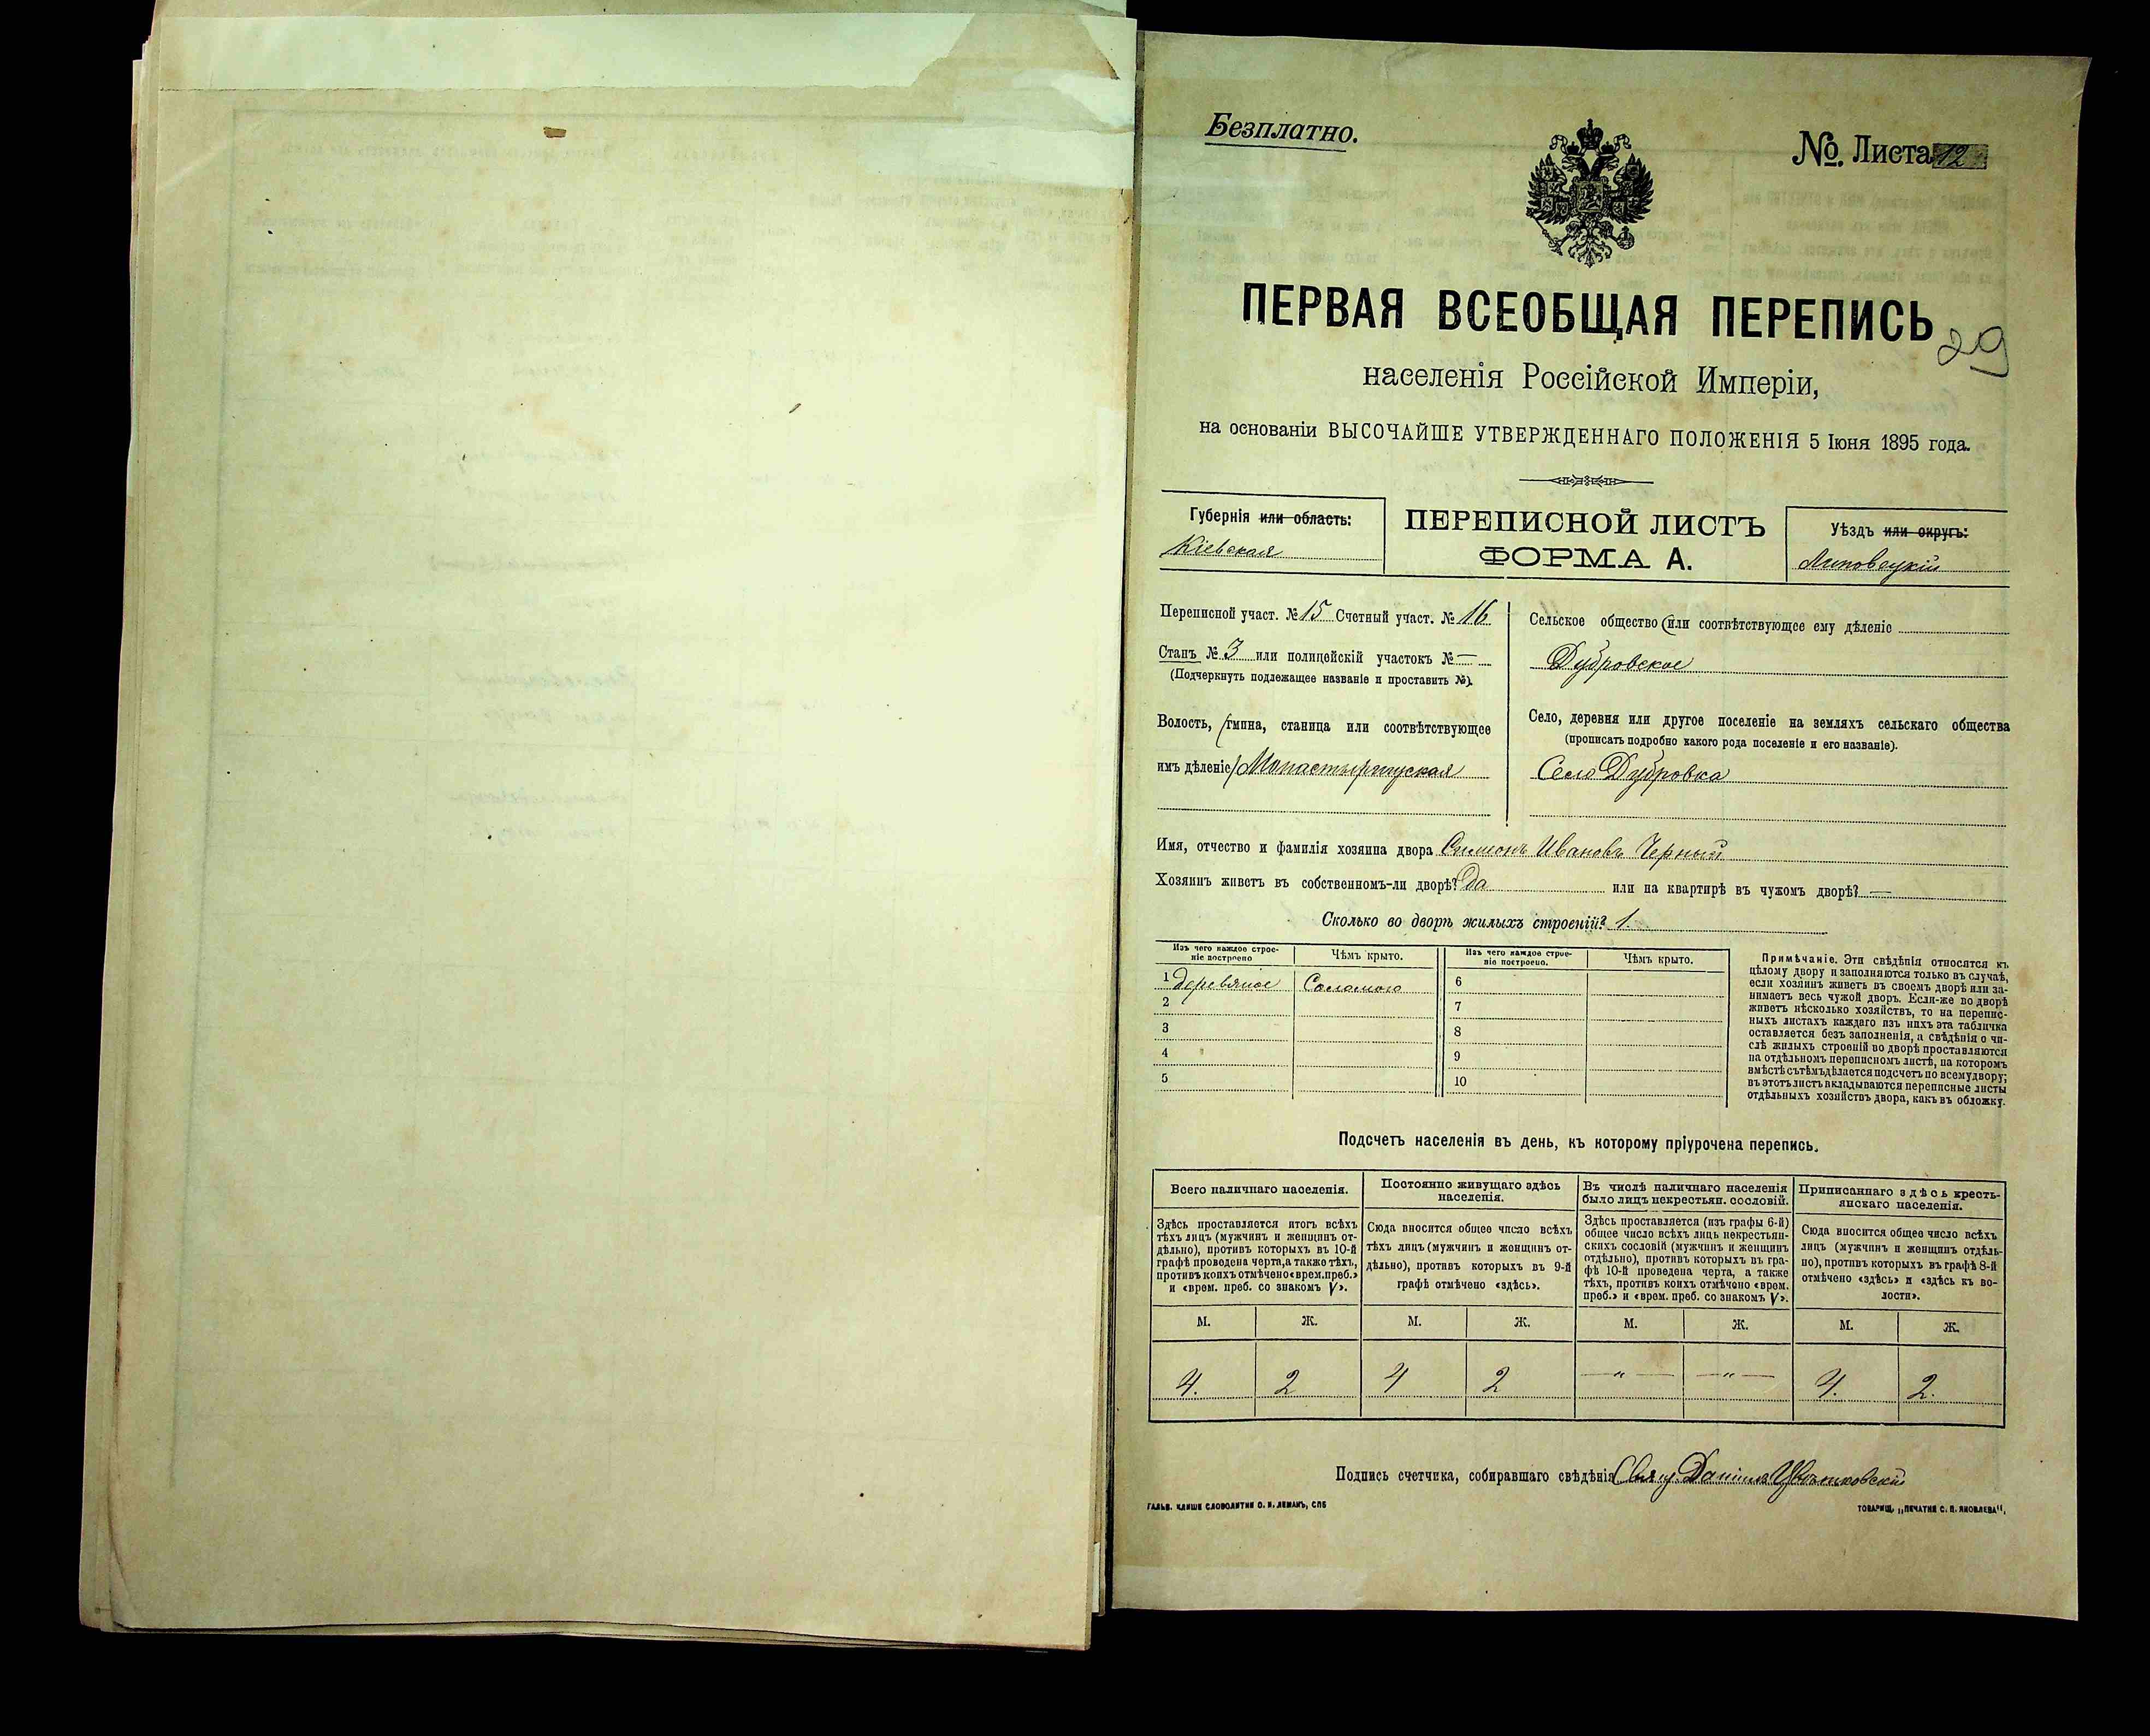 Безплатно.
№ Листа 12
ПЕРВАЯ ВСЕОБЩАЯ ПЕРЕПИСЬ
29
населенія Россійской Имперіи,
на основаніи ВЫСОЧАЙШЕ УТВЕРЖДЕННАГО ПОЛОЖЕНІЯ 5 Іюня 1895 года.
Губернія или область:
Кіевская
ПЕРЕПИСНОЙ ЛИСТЪ
ФОРМА А.
Уѣздъ или округъ:
Липовецкій
Переписной участ. № 15 Счетный участ. № 16
Станъ № 3 или полицейскій участокъ № —
(Подчеркнуть подлежащее названіе и проставить №).
Волость, (гмина, станица или соотвѣтствующее
имъ дѣленіе) Монастырищская
Сельское общество (или соотвѣтствующее ему дѣленіе
Дубровское
Село, деревня или другое поселеніе на земляхъ сельскаго общества
(прописать подробно какого рода поселеніе и его названіе).
Село Дубровка
Имя, отчество и фамилія хозяина двора Симеонъ Ивановъ Черный
Хозяинъ живетъ въ собственномъ-ли дворѣ? да или на квартирѣ въ чужомъ дворѣ? —
Сколько во дворѣ жилыхъ строеній? 1.
Изъ чего каждое строе-
ніе построено
Чѣмъ крыто.
Изъ чего каждое строе-
ніе построено.
Чѣмъ крыто.
1 деревяное Соломою 6
2 7
3 8
4 9
5 10
Примѣчаніе. Эти свѣдѣнія относятся къ
цѣлому двору и заполняются только въ случаѣ,
если хозяинъ живетъ въ своемъ дворѣ или за-
нимаетъ весь чужой дворъ. Если-же во дворѣ
живетъ нѣсколько хозяйствъ, то на перепис-
ныхъ листахъ каждаго изъ нихъ эта табличка
оставляется безъ заполненія, а свѣдѣнія о чи-
слѣ жилыхъ строеній во дворѣ проставляются
на отдѣльномъ переписномъ листѣ, на которомъ
вмѣстѣ съ тѣмъ дѣлается подсчетъ по всему двору;
въ этотъ листъ вкладываются переписные листы
отдѣльныхъ хозяйствъ двора, какъ въ обложку.
Подсчетъ населенія въ день, къ которому пріурочена перепись.
Всего наличнаго населенія.
Здѣсь проставляется итогъ всѣхъ
тѣхъ лицъ (мужчинъ и женщинъ от-
дѣльно), противъ которыхъ въ 10-й
графѣ проведена черта, а также тѣхъ,
противъ коихъ отмѣчено «врем. преб.»
и «врем. преб. со знакомъ V».
Постоянно живущаго здѣсь
населенія.
Сюда вносится общее число всѣхъ
тѣхъ лицъ (мужчинъ и женщинъ от-
дѣльно), противъ которыхъ въ 9-й
графѣ отмѣчено «здѣсь».
Въ числѣ наличнаго населенія
было лицъ некрестьян. сословій.
Здѣсь проставляется (изъ графы 6-й)
общее число всѣхъ лицъ некрестьян-
скихъ сословій (мужчинъ и женщинъ
отдѣльно), противъ которыхъ въ гра-
фѣ 10-й проведена черта, а также
тѣхъ, противъ коихъ отмѣчено «врем.
преб.» и «врем. преб. со знакомъ V».
Приписаннаго здѣсь кресть-
янскаго населенія.
Сюда вносится общее число всѣхъ
лицъ (мужчинъ и женщинъ отдѣль-
но), противъ которыхъ въ графѣ 8-й
отмѣчено «здѣсь» и «здѣсь къ во-
лости».
М. Ж. М. Ж. М. Ж. М. Ж.
4. 2 4 2 — „ — — „ — 4. 2.
Подпись счетчика, собиравшаго свѣдѣнія Даніилъ Цвѣтковскій
ГАЛЬВ. КЛИШЕ СЛОВОЛИТНИ О. И. ЛЕМАНЪ, СПБ
ТОВАРИЩ. „ПЕЧАТНЯ С. П. ЯКОВЛЕВА“.